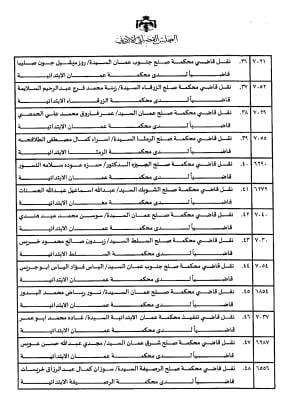 المجلس القضائي الأردني
٣٦. نقل قاضي محكمة صلح جنوب عمان السيدة/ روز ميشيل جون صليبا ٧٠٢١
قاضياً لدى محكمة عمان الابتدائية
٣٧. نقل قاضي محكمة صلح الزرقاء السيدة/ زينة محمد فرج عبدالرحيم السلايمة ٧٠٥٢
قاضياً لدى محكمة الزرقاء الابتدائية
٣٨. نقل قاضي محكمة صلح عمان السيد/ عمر فاروق محمد علي الحمصي ٧٠٢٩
قاضياً لدى محكمة عمان الابتدائية
٣٩. نقل قاضي محكمة صلح الرمثا السيدة/ اسراء كمال مصطفى الطلافحه ٧٠٥٥
قاضياً لدى محكمة الرمثا الابتدائية
٤٠. نقل قاضي محكمة صلح الجيزه الدكتور/ حمزه عوده سلامه النسور ٦٦٢٠
قاضياً لدى محكمة عمان الابتدائية
٤١. نقل قاضي محكمة صلح الشوبك السيد/ عبدالله اسماعيل عبدالله الحسنات ٦٦٧٩
قاضياً لدى محكمة معان الابتدائية
٤٢. نقل قاضي محكمة صلح عمان السيدة/ سوسن محمد عبد هندي ٧٠٤٠
قاضياً لدى محكمة عمان الابتدائية
٤٣. نقل قاضي محكمة صلح السلط السيد/ زيدون صالح محمود خريس ٧٠٣٠
قاضياً لدى محكمة السلط الابتدائية
٤٤. نقل قاضي محكمة صلح جنوب عمان السيد/ الياس فؤاد الياس ابو جريس ٧٠٥٤
قاضياً لدى محكمة عمان الابتدائية
٤٥. نقل قاضي محكمة صلح عمان السيدة/ نور رياض محمد البدور ٦٨٥٤
قاضياً لدى محكمة عمان الابتدائية
٤٦. نقل قاضي تنفيذ محكمة عمان الابتدائية السيدة/ غاده محمد ابو عمر ٧٠٣٧
قاضياً لدى محكمة عمان الابتدائية
٤٧. نقل قاضي محكمة صلح شرق عمان السيد/ مجدي عبدالله حسن عويس ٦٢٨٧
قاضياً لدى محكمة عمان الابتدائية
٤٨. نقل قاضي محكمة صلح الرصيفة السيدة/ سوزان كمال عبدالرزاق خريسات ٦٥٥٦
قاضياً لدى محكمة الرصيفة الابتدائية